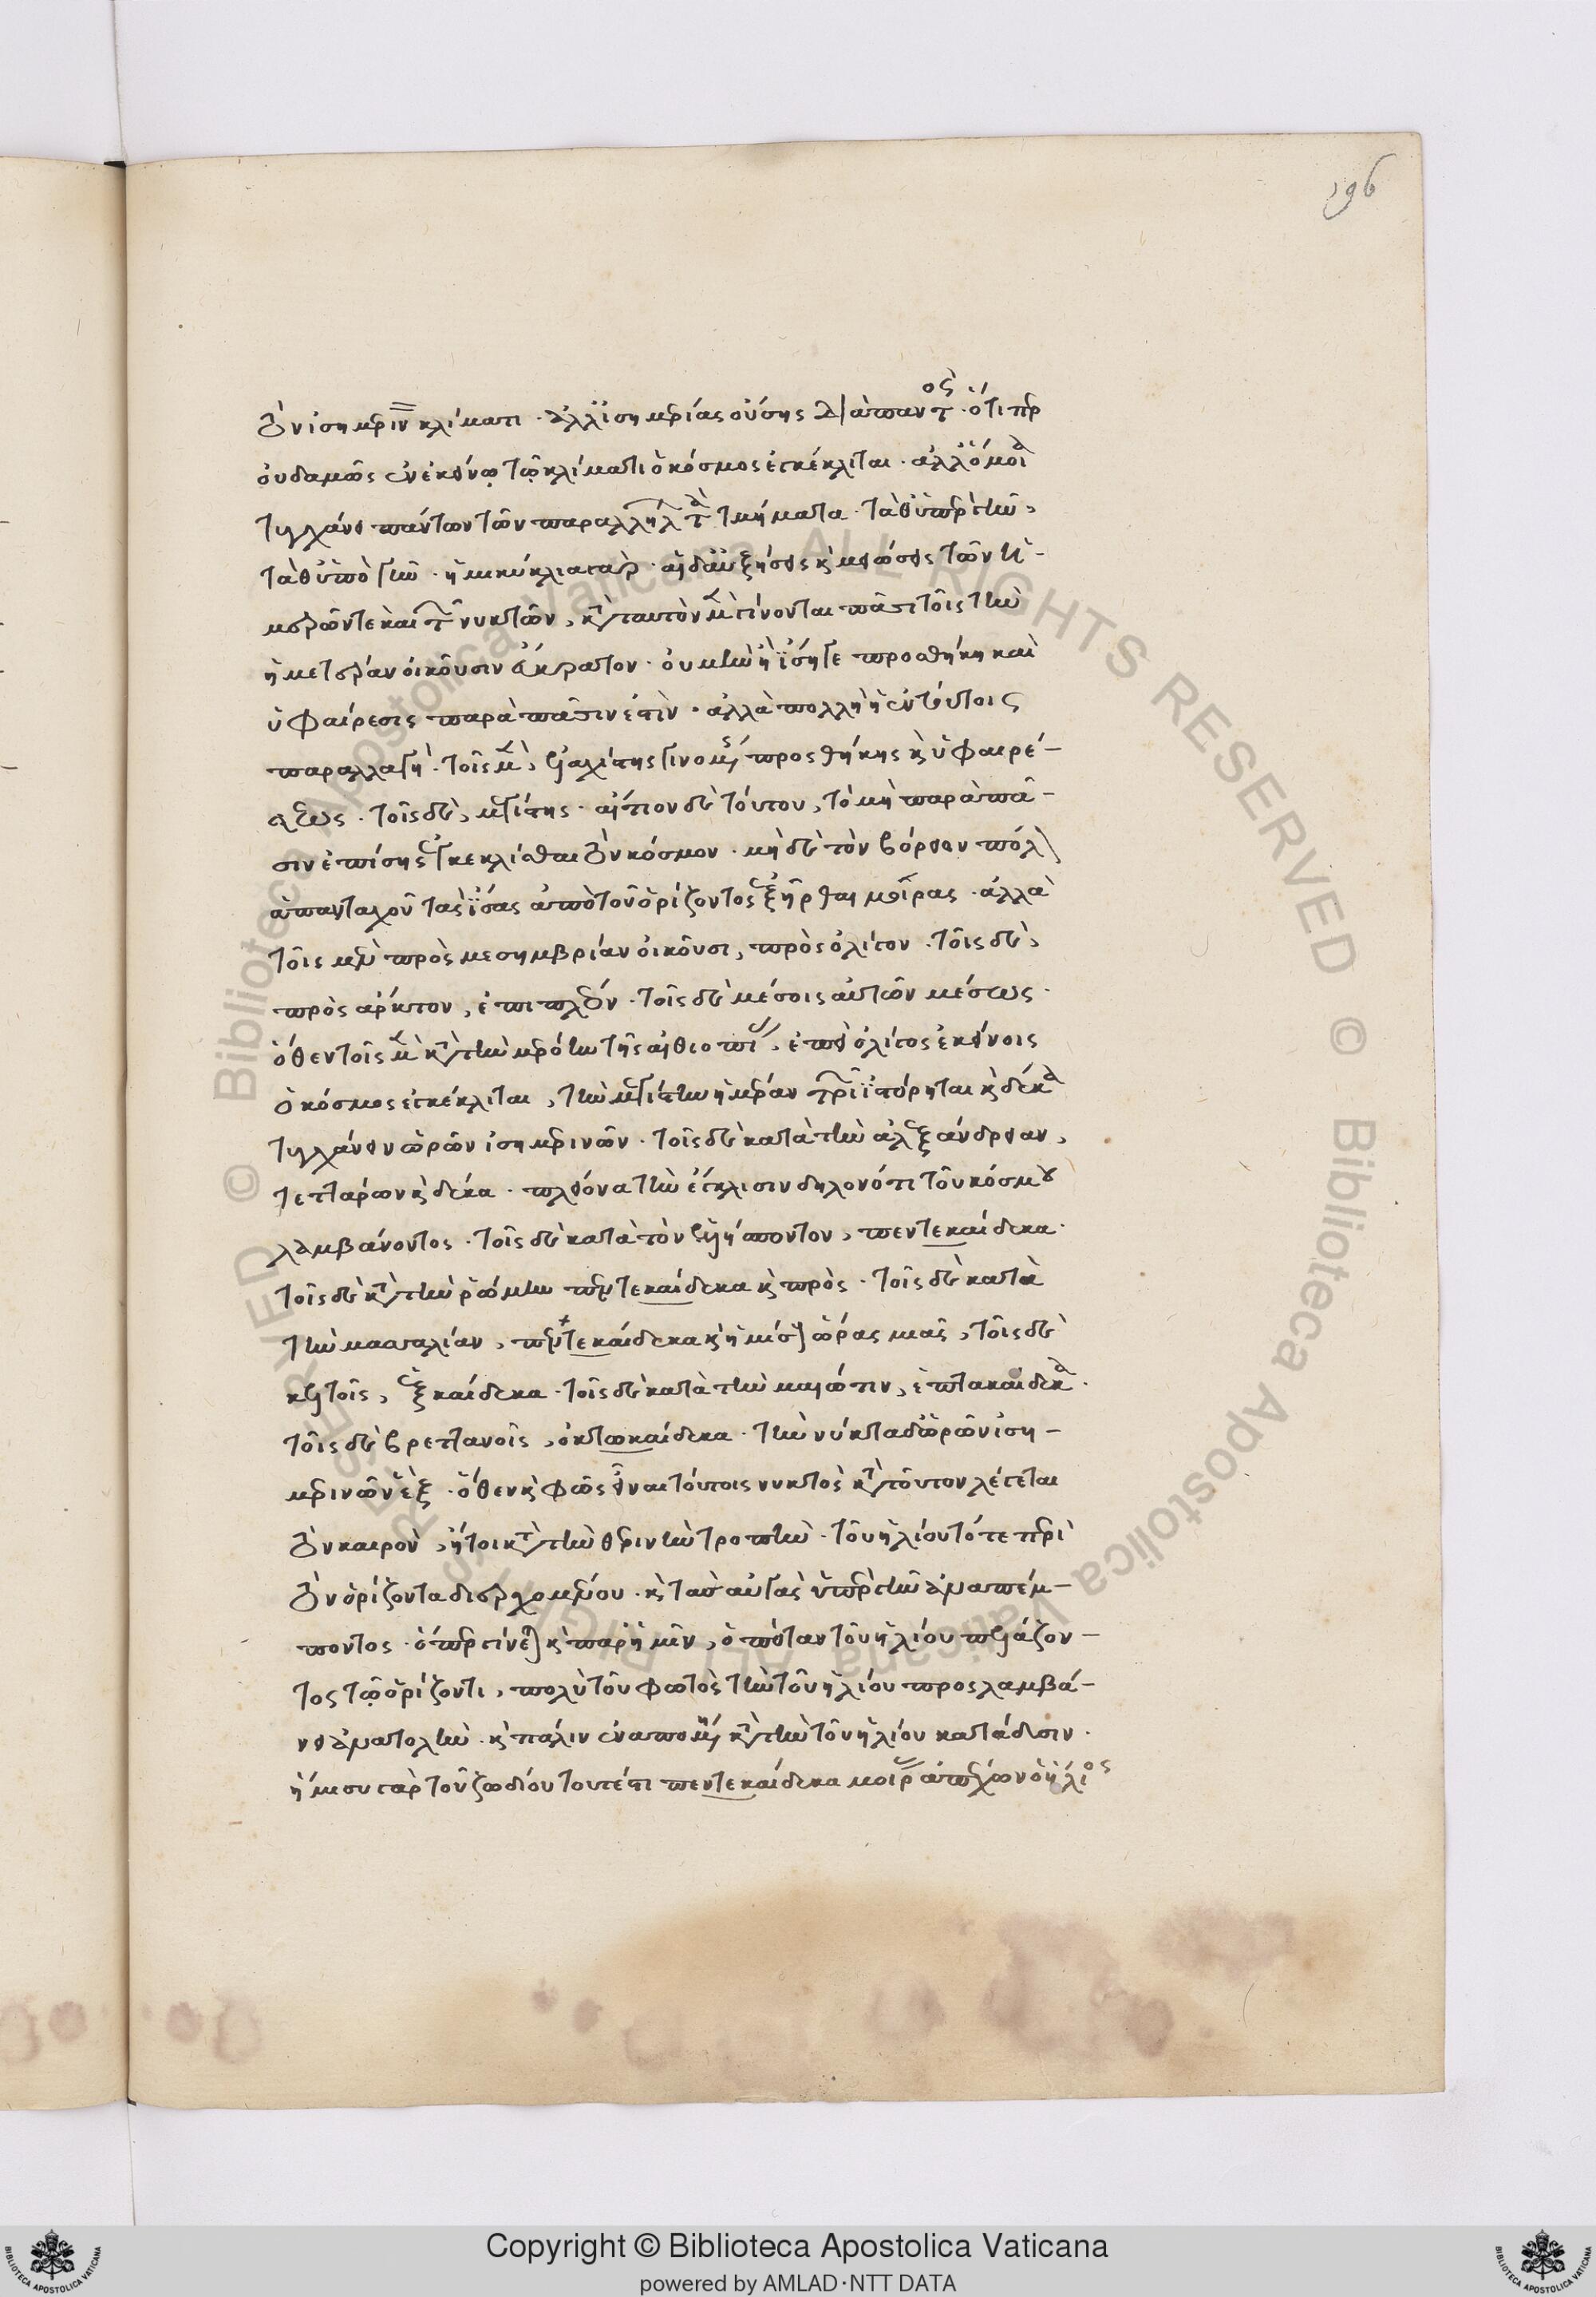 196
τὸν ἰσημερινῶ κλίματι · ἀλλ' ἰσημερίας οὔσης διαπαντός · ὅτιπερ
οὐδαμῶς ἐν ἐκείνῳ τῷ κλίματι ὁ κόσμος ἐγκέκλιται · ἀλλ' ὅμοια
τυγχάνει πάντων τῶν παραλλήλων τὰ τμήματα · τά θ' ὑπὲρ γῆν,
τά θ' ὑπὸ γῆν · ἡμικύκλια γάρ · αἱ δ' αὐξήσεις καὶ μειώσεις τῶν ἡ-
μερῶν τε καὶ τῶν νυκτῶν, κατὰ ταυτὸν μὲν γίνονται πᾶσι τοῖς τὴν
ἡμετέραν οἰκοῦσιν εὔκρατον · οὐ μὴν ἡ ἴση γε προσθήκη καὶ
ὑφαίρεσις παρὰ πᾶσιν ἐστὶν · ἀλλὰ πολλὴ ἡ ἐν τούτοις
παραλλαγή · τοῖς μὲν, ἐλαχίστης γινομένης προσθήκης καὶ ὑφαιρέ-
σεως · τοῖς δὲ, μεγίστης · αἴτιον δὲ τούτου, τὸ μὴ παρὰ πᾶ-
σιν ἐπίσης ἐγκεκλίσθαι τὸν κόσμον · μηδὲ τὸν βόρειον πόλον
ἁπανταχοῦ τὰς ἴσας ἀπὸ τοῦ ὁρίζοντος ἐξῆρθαι μοίρας · ἀλλὰ
τοῖς μὲν πρὸς μεσημβρίαν οἰκοῦσι, πρὸς ὀλίγον · τοῖς δὲ,
πρὸς ἄρκτον, ἐπιπλεῖον · τοῖς δὲ μέσοις αὐτῶν μέσως ·
ὅθεν τοῖς μὲν κατὰ τὴν μερόην τῆς αἰθιοπίας, ἐπεὶ ὀλίγος ἐκείνοις
ὁ κόσμος ἐγκέκλιται, τὴν μεγίστην ἡμέραν τριῶν ἱστόρηται καὶ δέκα
τυγχάνειν ὡρῶν ἰσημερινῶν · τοῖς δὲ κατὰ τὴν ἀλεξάνδρειαν,
τεττάρων καὶ δέκα · πλείονα τὴν ἔγκλισιν δηλονότι τοῦ κόσμου
λαμβάνοντος · τοῖς δὲ κατὰ τὸν ἑλλήσποντον, πεντεκαίδεκα ·
τοῖς δὲ κατὰ τὴν ῥώμην πεντεκαίδεκα καὶ πρὸς · τοῖς δὲ κατὰ
τὴν μασσαλίαν, πεντεκαίδεκα καὶ ἡμίσει ὥρας μιᾶς, τοῖς δὲ
κελτοῖς, ἑξκαίδεκα · τοῖς δὲ κατὰ τὴν μαιῶτιν, ἑπτακαίδεκα ·
τοῖς δὲ βρεττανοῖς, ὀκτωκαίδεκα · τὴν νύκτα δ' ὡρῶν ἰση-
μερινῶν ἓξ · ὅθεν καὶ φῶς εἶναι τούτοις νυκτὸς κατὰ τοῦτον λέγεται
τὸν καιρὸν, ἤτοι κατὰ τὴν θερινὴν τροπὴν · τοῦ ἡλίου τότε περὶ
τὸν ὁρίζοντα διερχομένου · καὶ τὰς αὐγὰς ὑπὲρ γῆν ἀναπέμ-
ποντος · ὅπερ γίνεται καὶ παρ' ἡμῖν, ὁπόταν τοῦ ἡλίου πελάζον-
τος τῷ ὁρίζοντι, πολὺ τοῦ φωτὸς τὴν τοῦ ἡλίου προσλαμβά-
νει ἀνατολὴν · καὶ πάλιν ἐναπομένει κατὰ τὴν τοῦ ἡλίου κατάδυσιν ·
ἥμισυ γὰρ τοῦ ζωδίου τουτέστι πεντεκαίδεκα μοίρας ἀπέχων ὁ ἥλιος
Copyright © Biblioteca Apostolica Vaticana
powered by AMLAD·NTT DATA